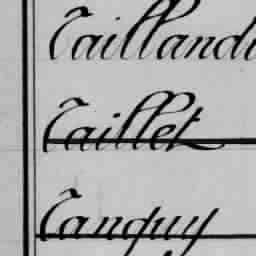 Tailland
Taillet
Tanquy